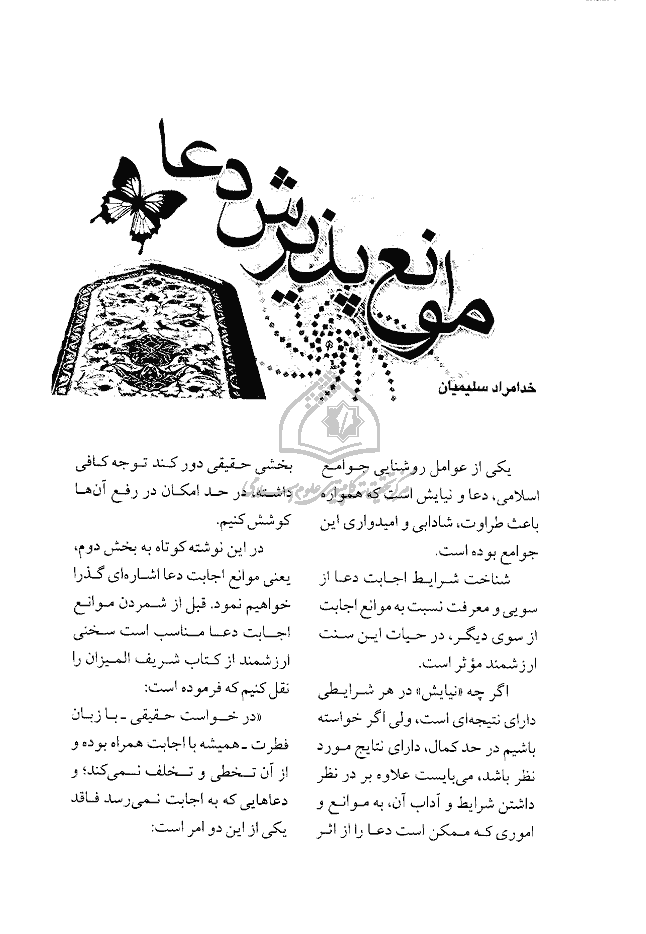 موانع پذیرش دعا
خدامراد سلیمیان
یکی از عوامل روشنایی جوامع
اسلامی، دعا و نیایش است که همواره
باعث طراوت، شادابی و امیدواری این
جوامع بوده است.
شناخت شرایط اجابت دعا از
سویی و معرفت نسبت به موانع اجابت
از سوی دیگر، در حیات این سنت
ارزشمند مؤثر است.
اگر چه «نیایش» در هر شرایطی
دارای نتیجه‌ای است، ولی اگر خواسته
باشیم در حد کمال، دارای نتایج مورد
نظر باشد، می‌بایست علاوه بر در نظر
داشتن شرایط و آداب آن، به موانع و
اموری که ممکن است دعا را از اثر
بخشی حقیقی دور کند توجه کافی
داشته، در حد امکان در رفع آن‌ها
کوشش کنیم.
در این نوشته کوتاه به بخش دوم،
یعنی موانع اجابت دعا اشاره‌ای گذرا
خواهیم نمود. قبل از شمردن موانع
اجابت دعا مناسب است سخنی
ارزشمند از کتاب شریف المیزان را
نقل کنیم که فرموده است:
«در خواست حقیقی ـ با زبان
فطرت ـ همیشه با اجابت همراه بوده و
از آن تخطی و تخلف نمی‌کند؛ و
دعاهایی که به اجابت نمی‌رسد فاقد
یکی از این دو امر است: